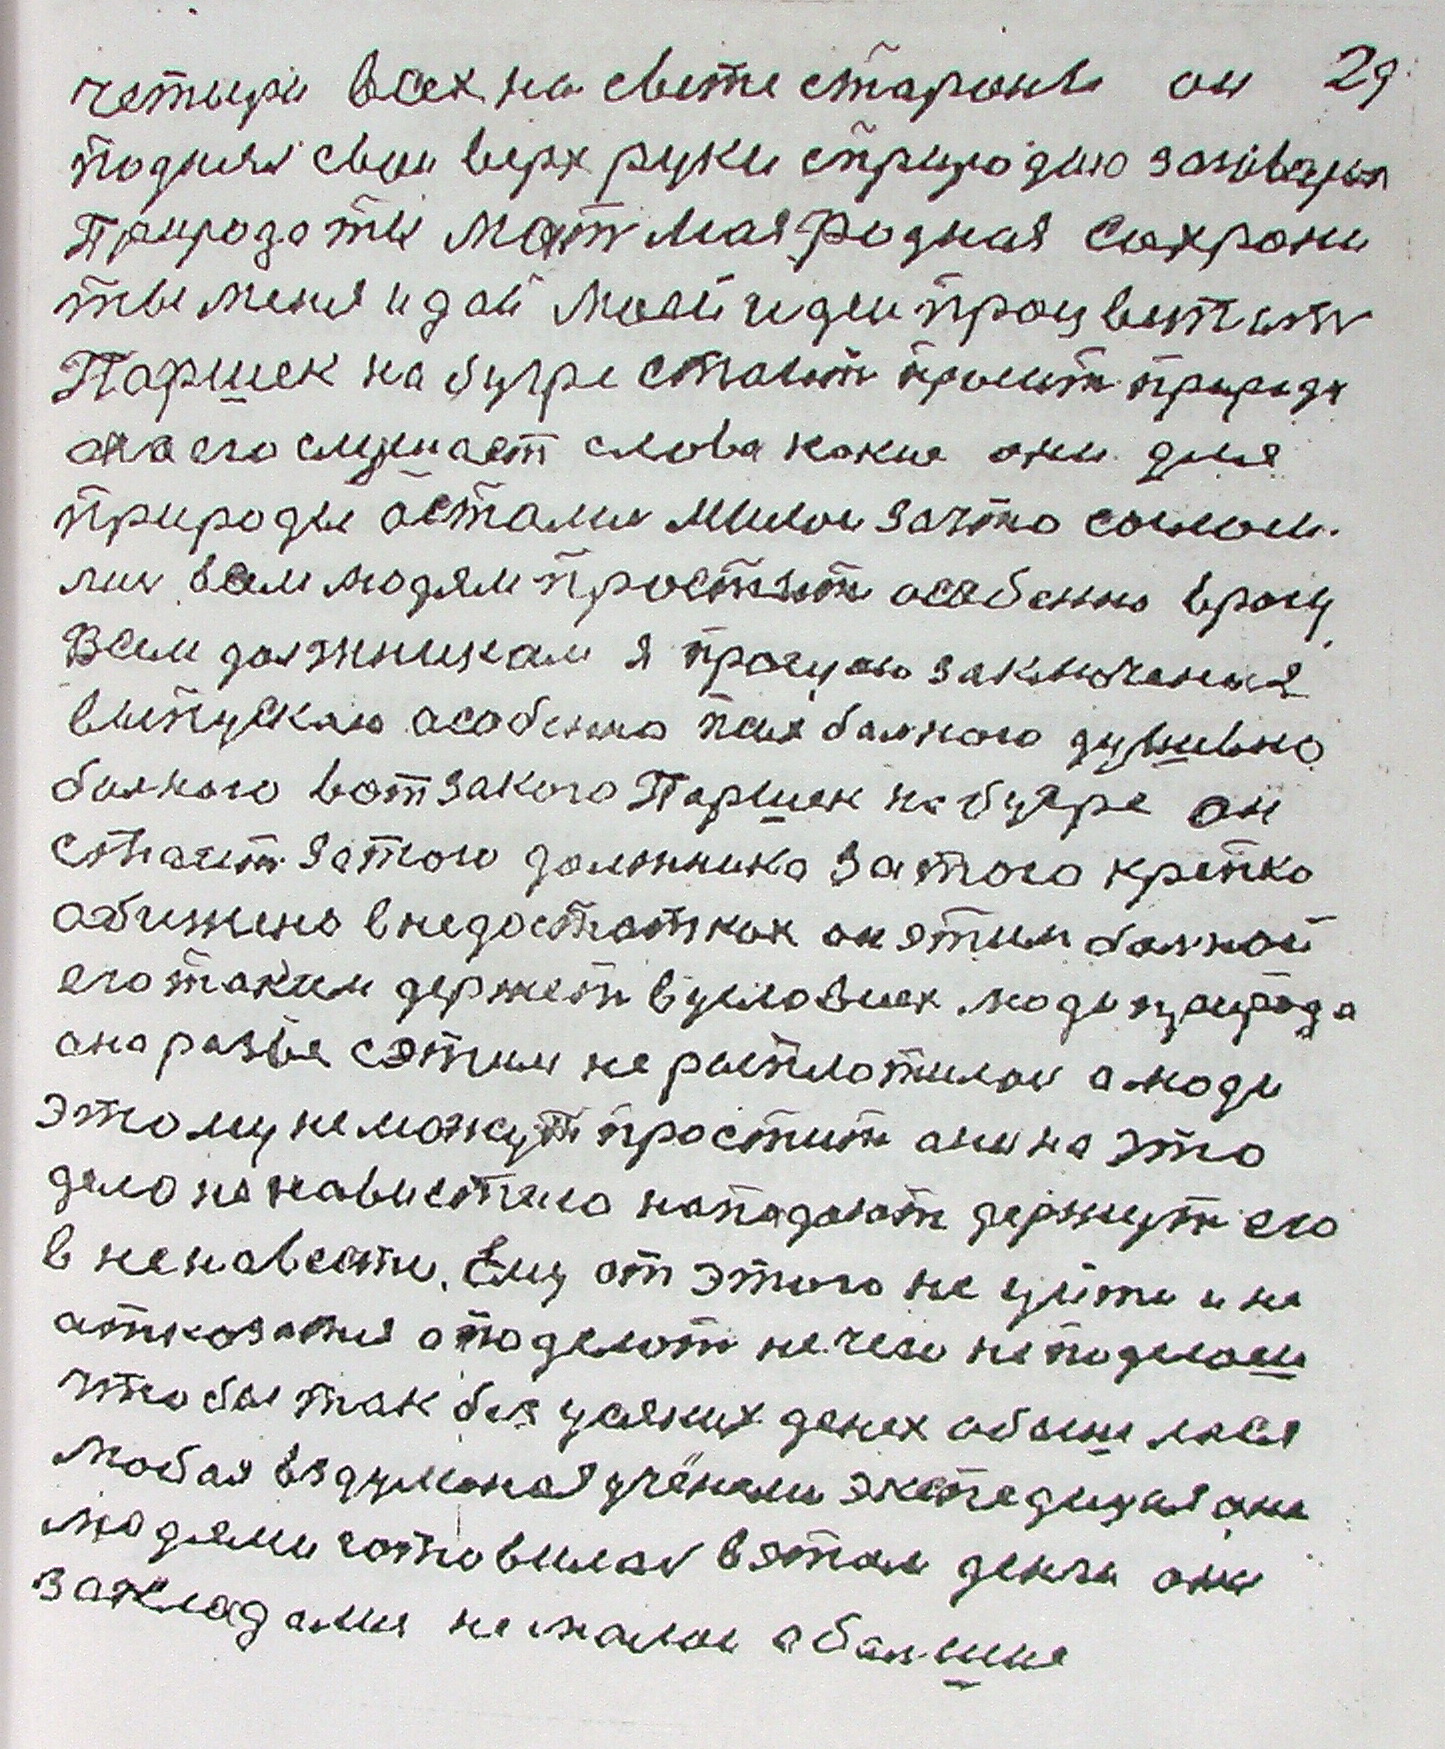 четыри всех на свете стараны он 29
поднял свои верх руки
Природа ты мать мая родная сахрани
ты меня и дай моей идеи процветать
Паршек на бугре стаить просить природу
она его слушает слова какие они для
природы астались милои за что
всем людям простить особенно врагу
Всем должникам я прошу заключения
выпускаю особенно псих балного душевно
балного вот за кого Паршек на бугре он
стаить за того должника за того крепко
обижено в недостатках он этим балной
его таким держеть в условиях люди природа
она разве с этим не расплотилась а люди
этому не можуть простить они на это
дело ненавистело нападають держуть его
в ненавести. Ему от этого не уйти и не
атказатся а поделать нечего не поделаеш
что бы так без усяких денех обашлася
любая вздуманая учёными экспедицыя она
людями готовилась в этом деньги они
закладалися не малои а балшие